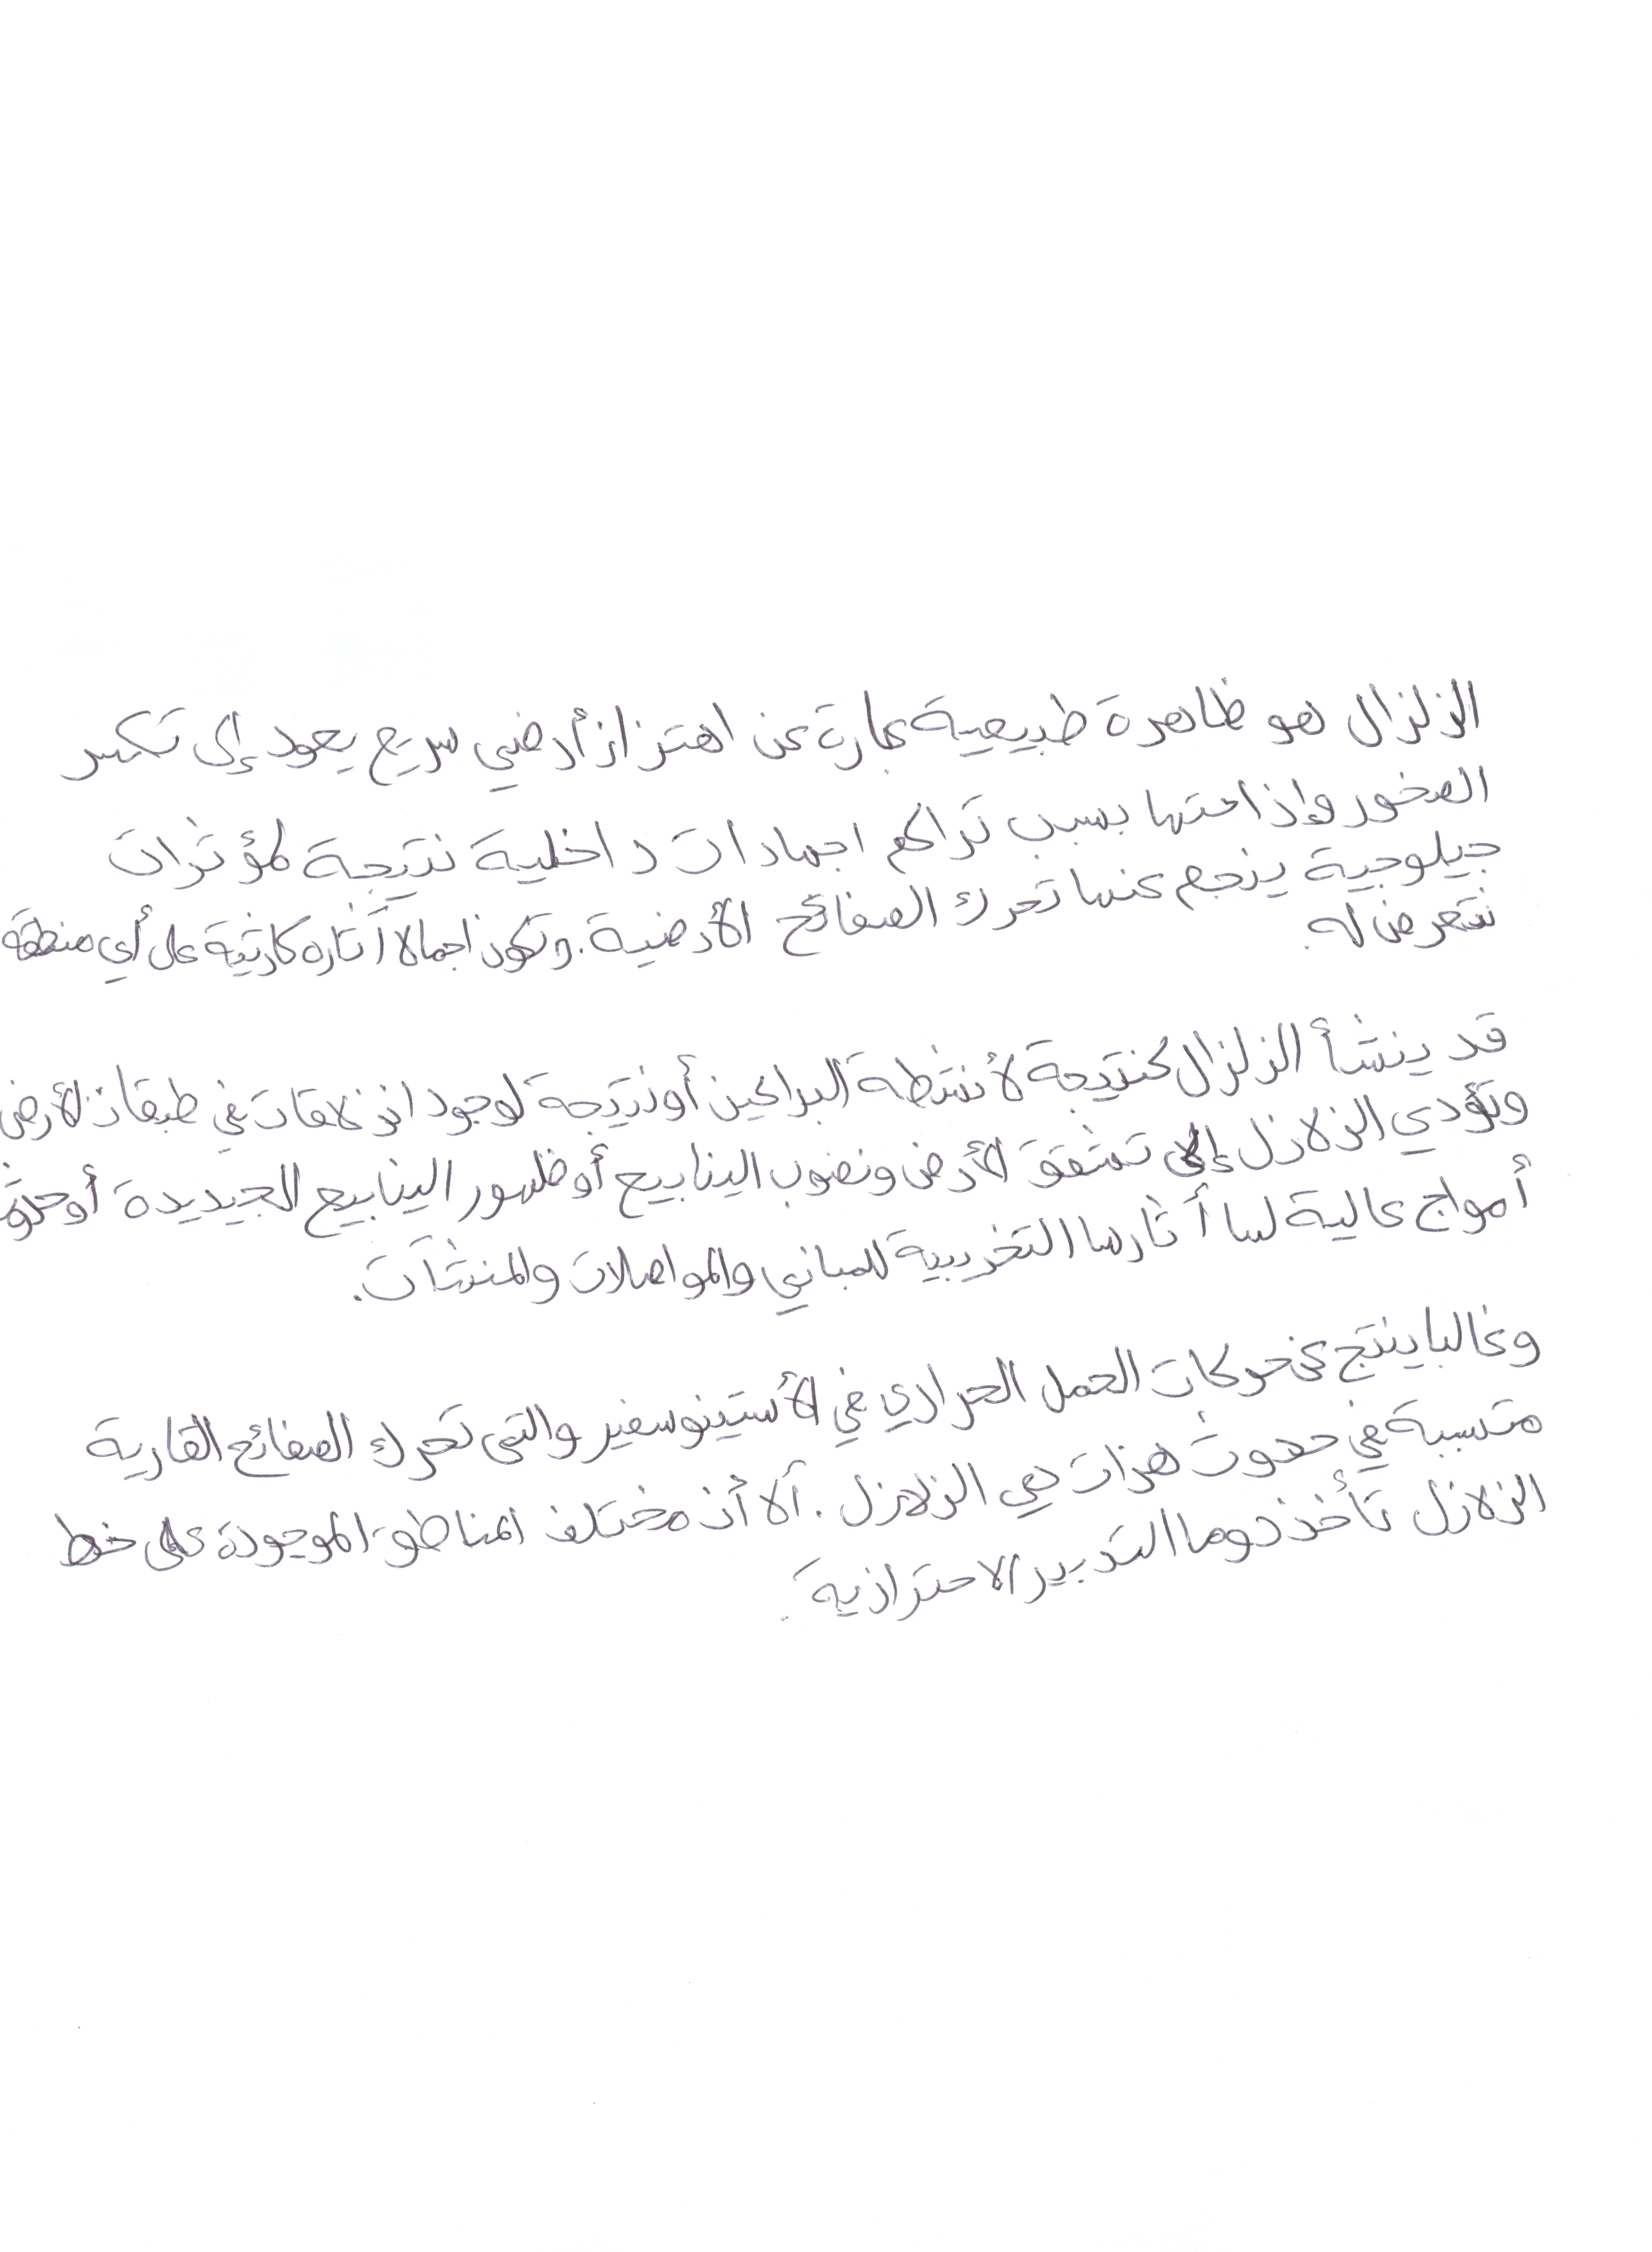 الزلزال هو ظاهرة طبيعية عبارة عن اهتزاز أرضي سريع يعود إلى تكسر
الصخور وإزاحتها بسبب تراكم اجهادات داخلية نتيجة لمؤثرات
جيلوجية ينجم عنها تحرك الصفائح الأرضية. وتكون اجمالا آثاره كارثية على أي منطقة
تتعرض له.
قد ينشأ الزلزال كنتيجة لأنشطة البراكين أو نتيجة لوجود انزلاقات في طبقات الأرض
وتؤدي الزلازل إلى تشقق الأرض ونضوب الينابيع أو ظهور الينابيع الجيديدة أو حدوث
أمواج عالية لها أثارها التخريبية للمباني والمواصلات والمنشآت.
وغالبا ينتج عن حركات الحمل الحراري في الأستينوسفير والتي تحرك الصفائح القارية
متسببة في حدوث هزات هي الزلازل. ألا أن مختلف المناطق الموجودة على خط
الزلازل تأخذ دوما التدبير الاحترازية.